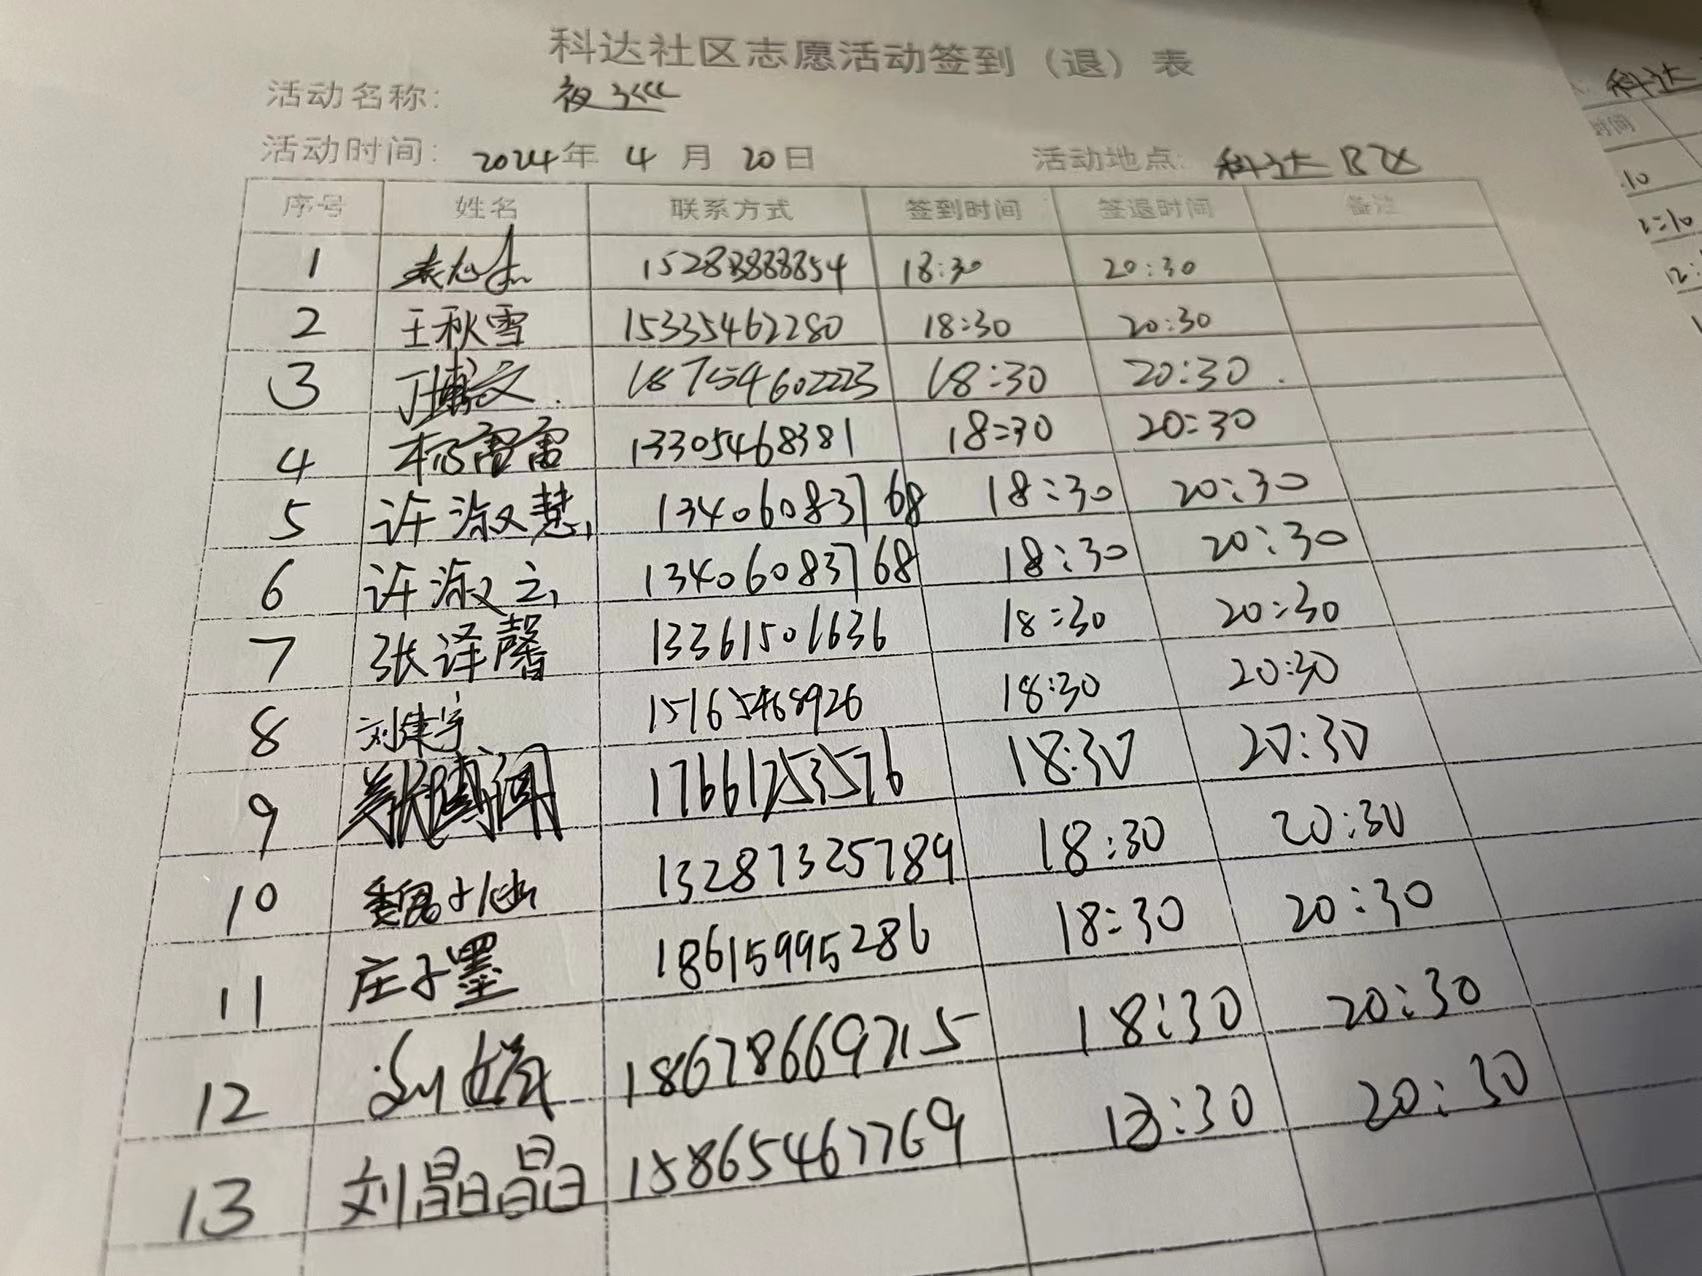 科达社区志愿活动签到（退）表
活动名称： 夜巡
活动时间： 2024年 4 月 20日 活动地点： 科达 B区
序号 姓名 联系方式 签到时间 签退时间 备注
1 15283888854 18:30 20:30
2 王秋雪 15335462280 18:30 20:30
3 丁博文 18754602223 18:30 20:30
4 杨雷雷 13305468381 18:30 20:30
5 许淑慧 13406083768 18:30 20:30
6 许淑云 13406083768 18:30 20:30
7 张译馨 13361501636 18:30 20:30
8 刘建宇 15165468926 18:30 20:30
9 17661253576 18:30 20:30
10 13287325789 18:30 20:30
11 庄子墨 18615995286 18:30 20:30
12 18678669715 18:30 20:30
13 刘晶晶 15865467769 18:30 20:30
科达
时间